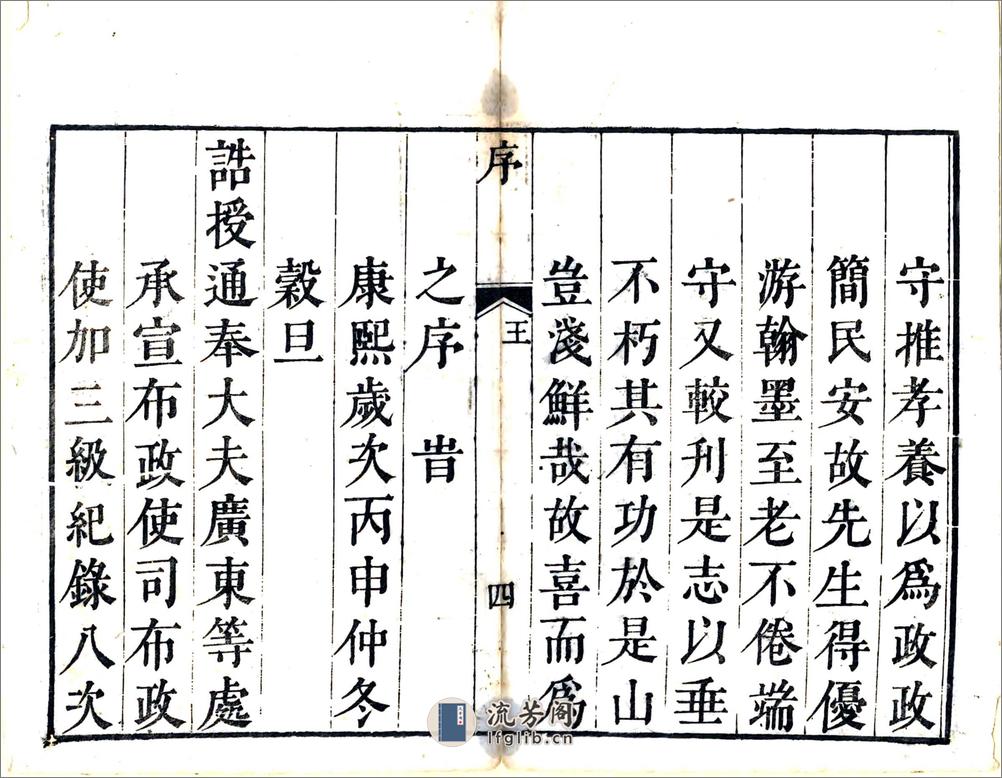 守推孝養以爲政政
簡民安故先生得優
游翰墨至老不倦端
守又較刋是志以垂
不朽其有功於是山
豈淺鮮哉故喜而爲
序 王 四
之序 旹
康熙歲次丙申仲冬
穀旦
誥授通奉大夫廣東等處
承宣布政使司布政
使加三級紀錄八次
流芳阁
lfglib.cn